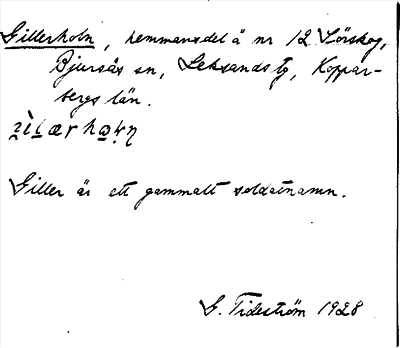 Gillerholn, hemmansdel å nr 12 Lörskog,
Bjursås sn, Leksands tg, Koppar-
bergs län.
Giller är ett gammalt soldatnamn.
G. Tideström 1928